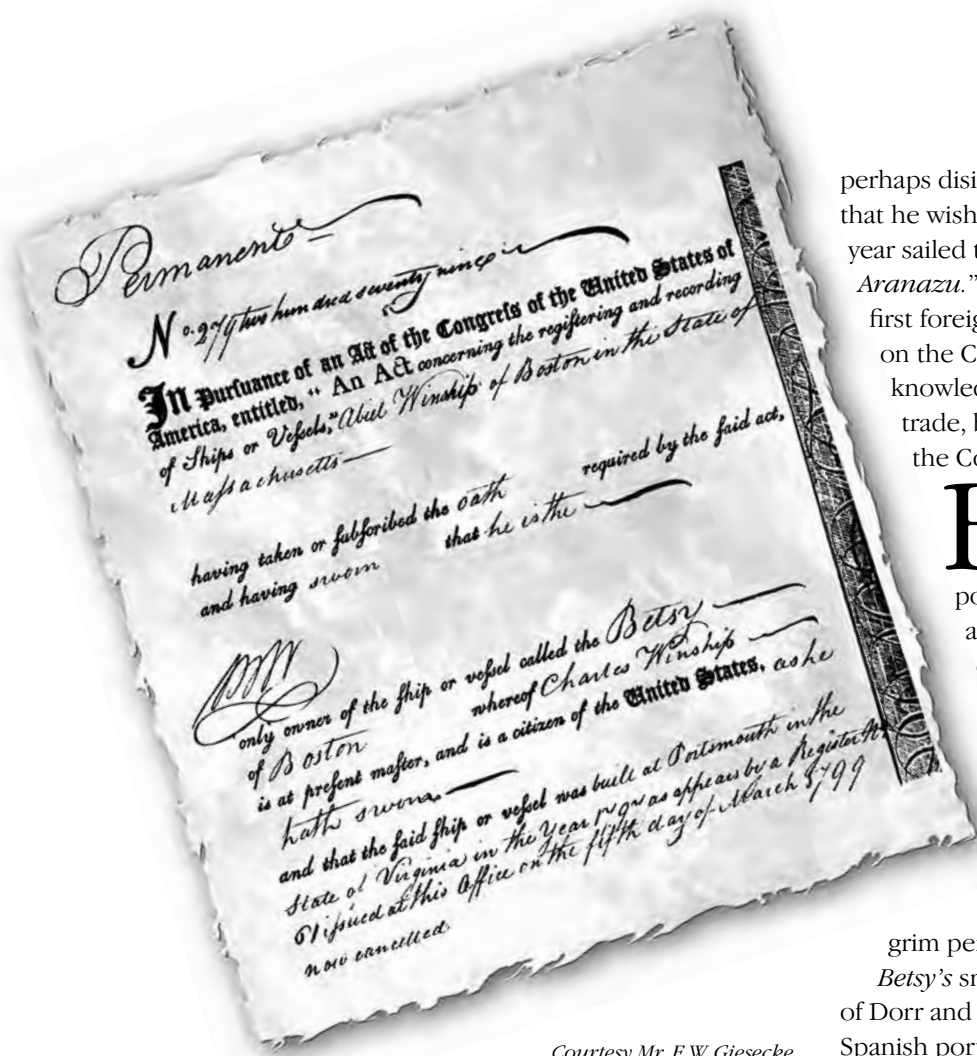 Permanent
No. 279 two hundred seventy nine
In Purſuance of an Act of the Congreſs of the United States of
America, entitled, “ An Act concerning the regiſtering and recording
of Ships or Veſſels,” Abiel Winship of Boston in the State of
Maſsachusetts
having taken or ſubſcribed the oath required by the ſaid act,
and having sworn that he is the
only owner of the ſhip or veſſel called the Betsy
of Boston whereof Charles Winship
is at preſent maſter, and is a citizen of the United States, as he
hath sworn
and that the ſaid ſhip or veſſel was built at Portsmouth in the
State of Virginia in the Year as appears by a Register No
61 iſsued at this Office on the fifth day of March 1799
now cancelled
Courtesy Mr. F.W. Giesecke
perhaps disi
that he wish
year sailed t
Aranazu.”
first foreig
on the C
knowled
trade, b
the Co
po
a
grim per
Betsy's sr
of Dorr and
Spanish por